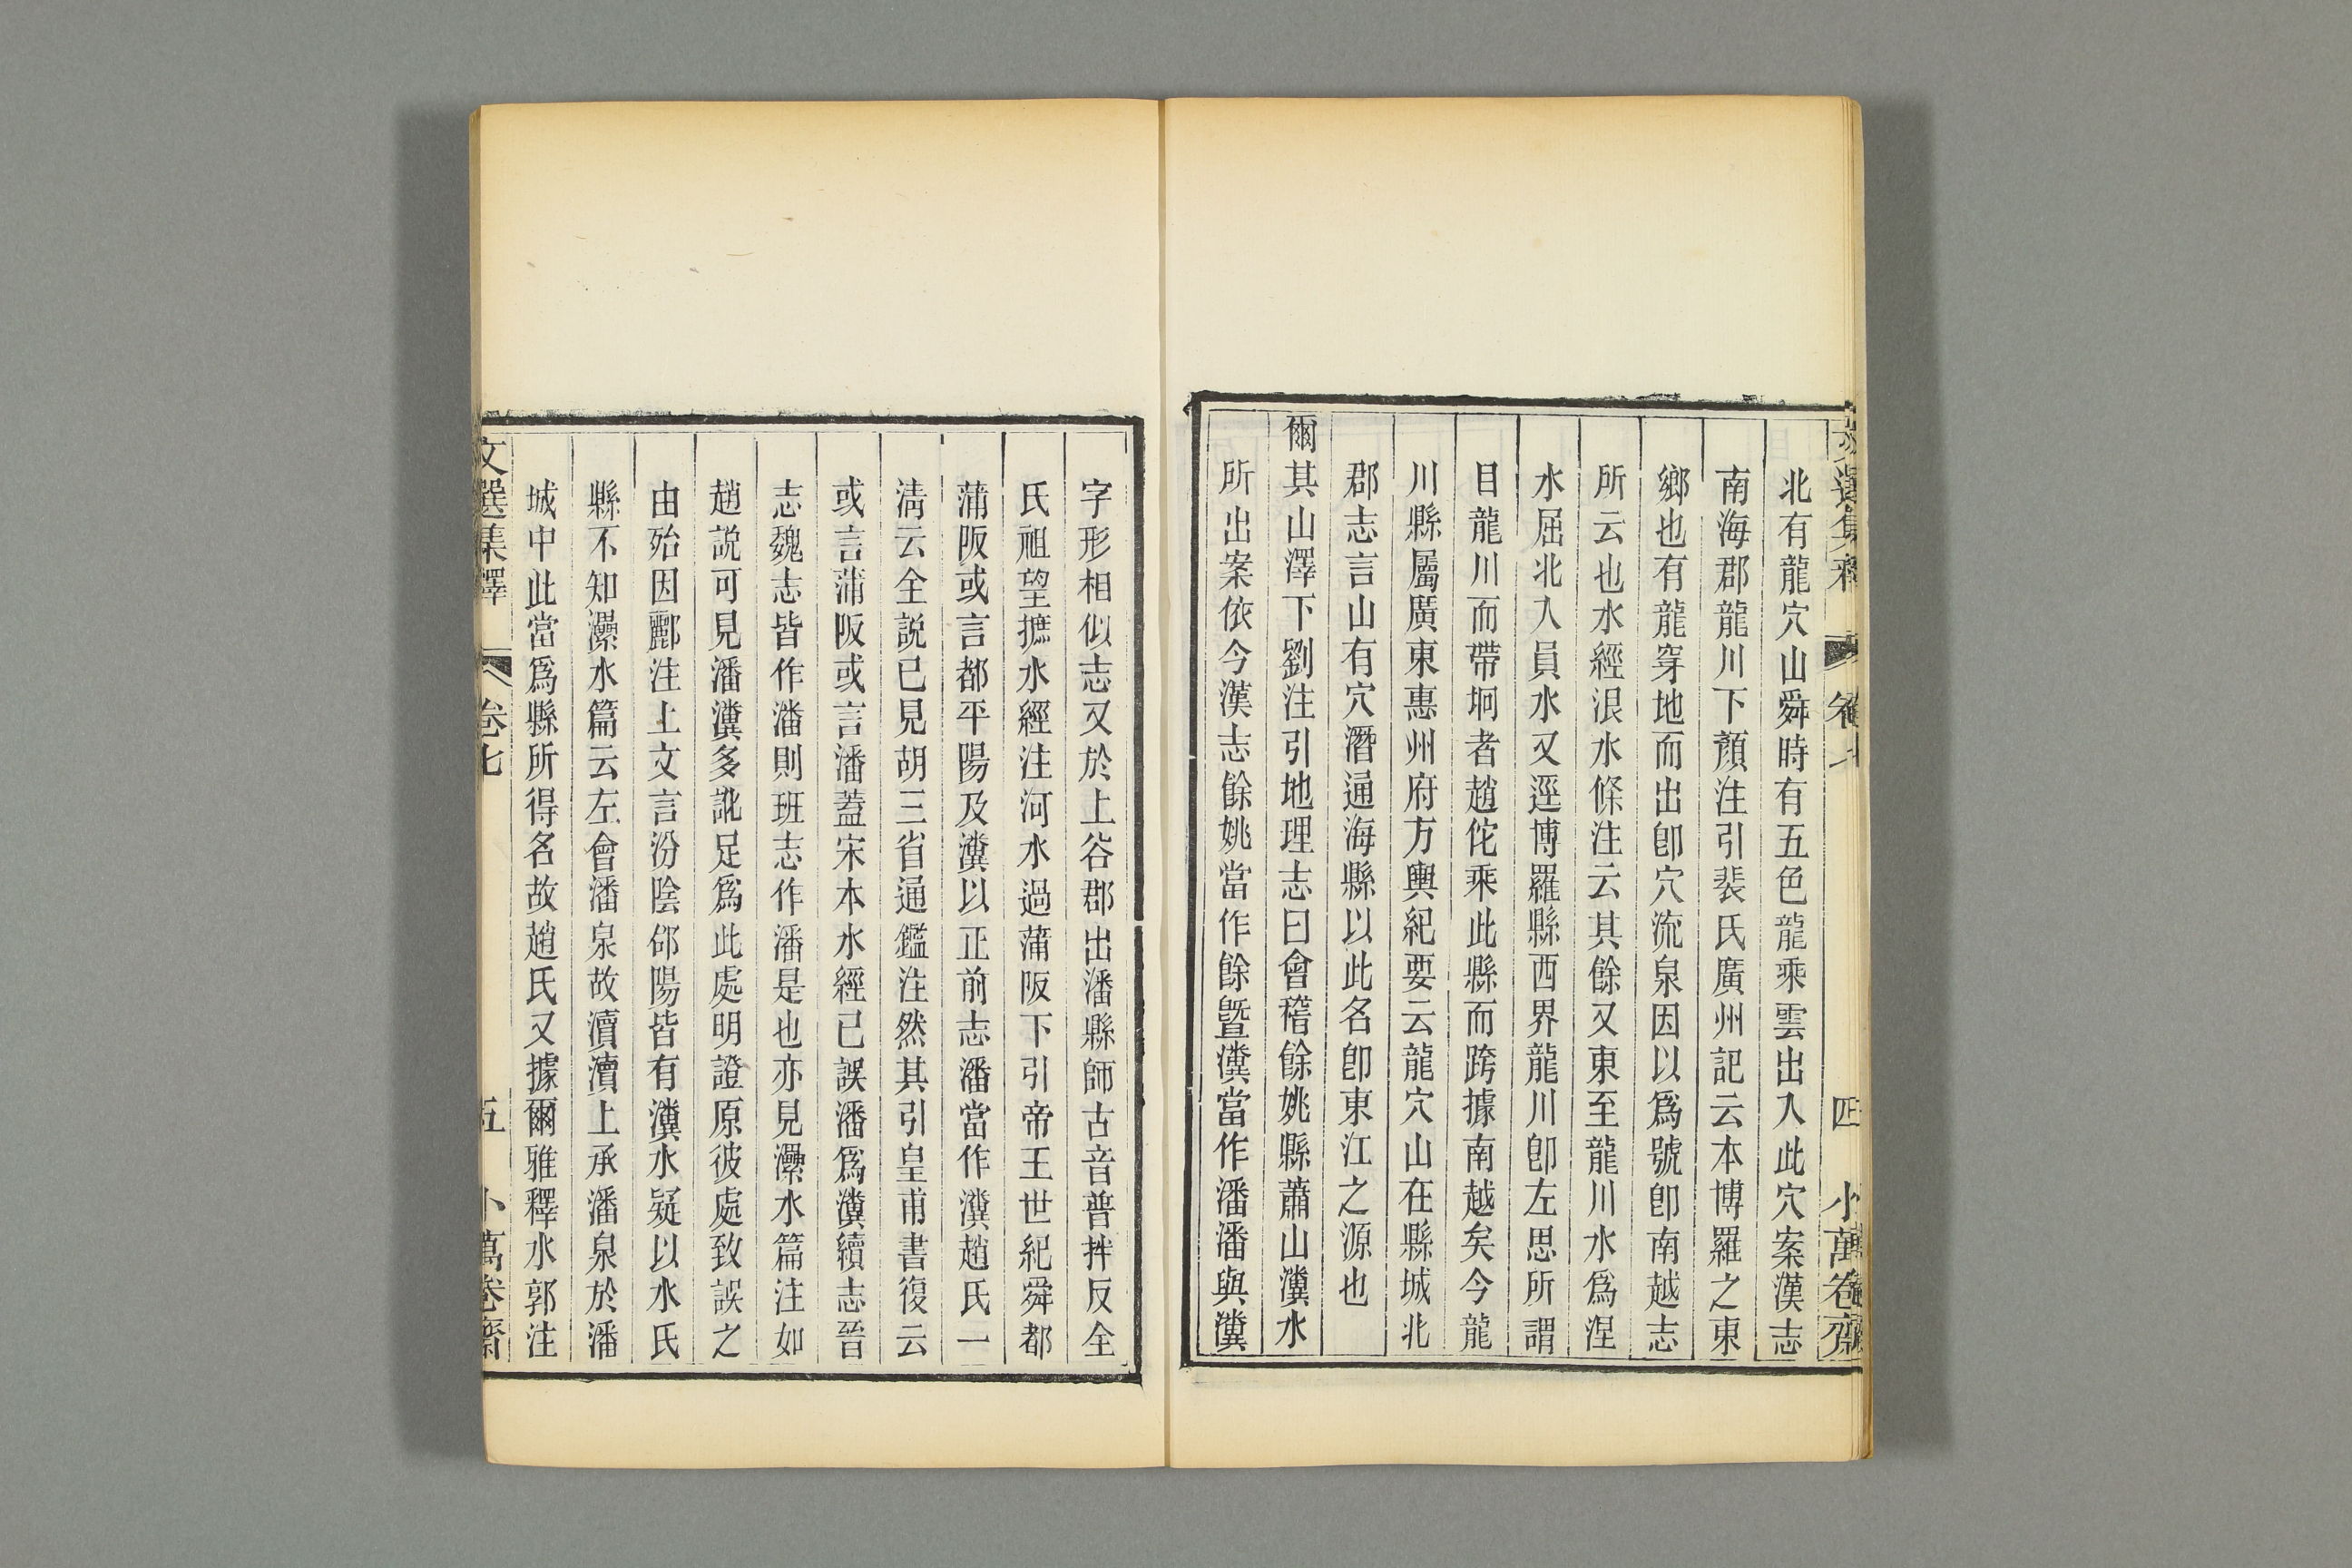 北有龍穴山舜時有五色龍乘雲出入此穴案漢志
南海郡龍川下顏注引裴氏廣州記云本博羅之東
鄉也有龍穿地而出卽穴流泉因以爲號卽南越志
所云也水經泿水條注云其餘又東至龍川水爲涅
水屈北入員水又逕博羅縣西界龍川卽左思所謂
目龍川而帶坰者趙佗乘此縣而跨據南越矣今龍
川縣屬廣東惠州府方輿紀要云龍穴山在縣城北
郡志言山有穴潛通海縣以此名卽東江之源也
爾其山澤下劉注引地理志曰會稽餘姚縣蕭山瀵水
所出案依今漢志餘姚當作餘曁瀵當作潘潘與瀵
字形相似志又於上谷郡出潘縣師古音普拌反全
氏祖望摭水經注河水過蒲阪下引帝王世紀舜都
蒲阪或言都平陽及瀵以正前志潘當作瀵趙氏一
淸云全說已見胡三省通鑑注然其引皇甫書復云
或言蒲阪或言潘蓋宋本水經已誤潘爲瀵續志晉
志魏志皆作潘則班志作潘是也亦見㶟水篇注如
趙說可見潘瀵多訛足爲此處明證原彼處致誤之
由殆因酈注上文言汾陰郃陽皆有瀵水疑以水氏
縣不知㶟水篇云左會潘泉故瀆瀆上承潘泉於潘
城中此當爲縣所得名故趙氏又據爾雅釋水郭注
文選集釋 卷七 五 小萬卷齋